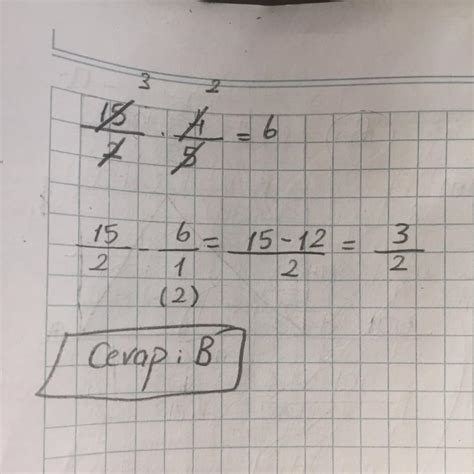 3 2
15/2 · 4/5 = 6
15/2 - 6/1 = 15-12/2 = 3/2
(2)
Cevap : B